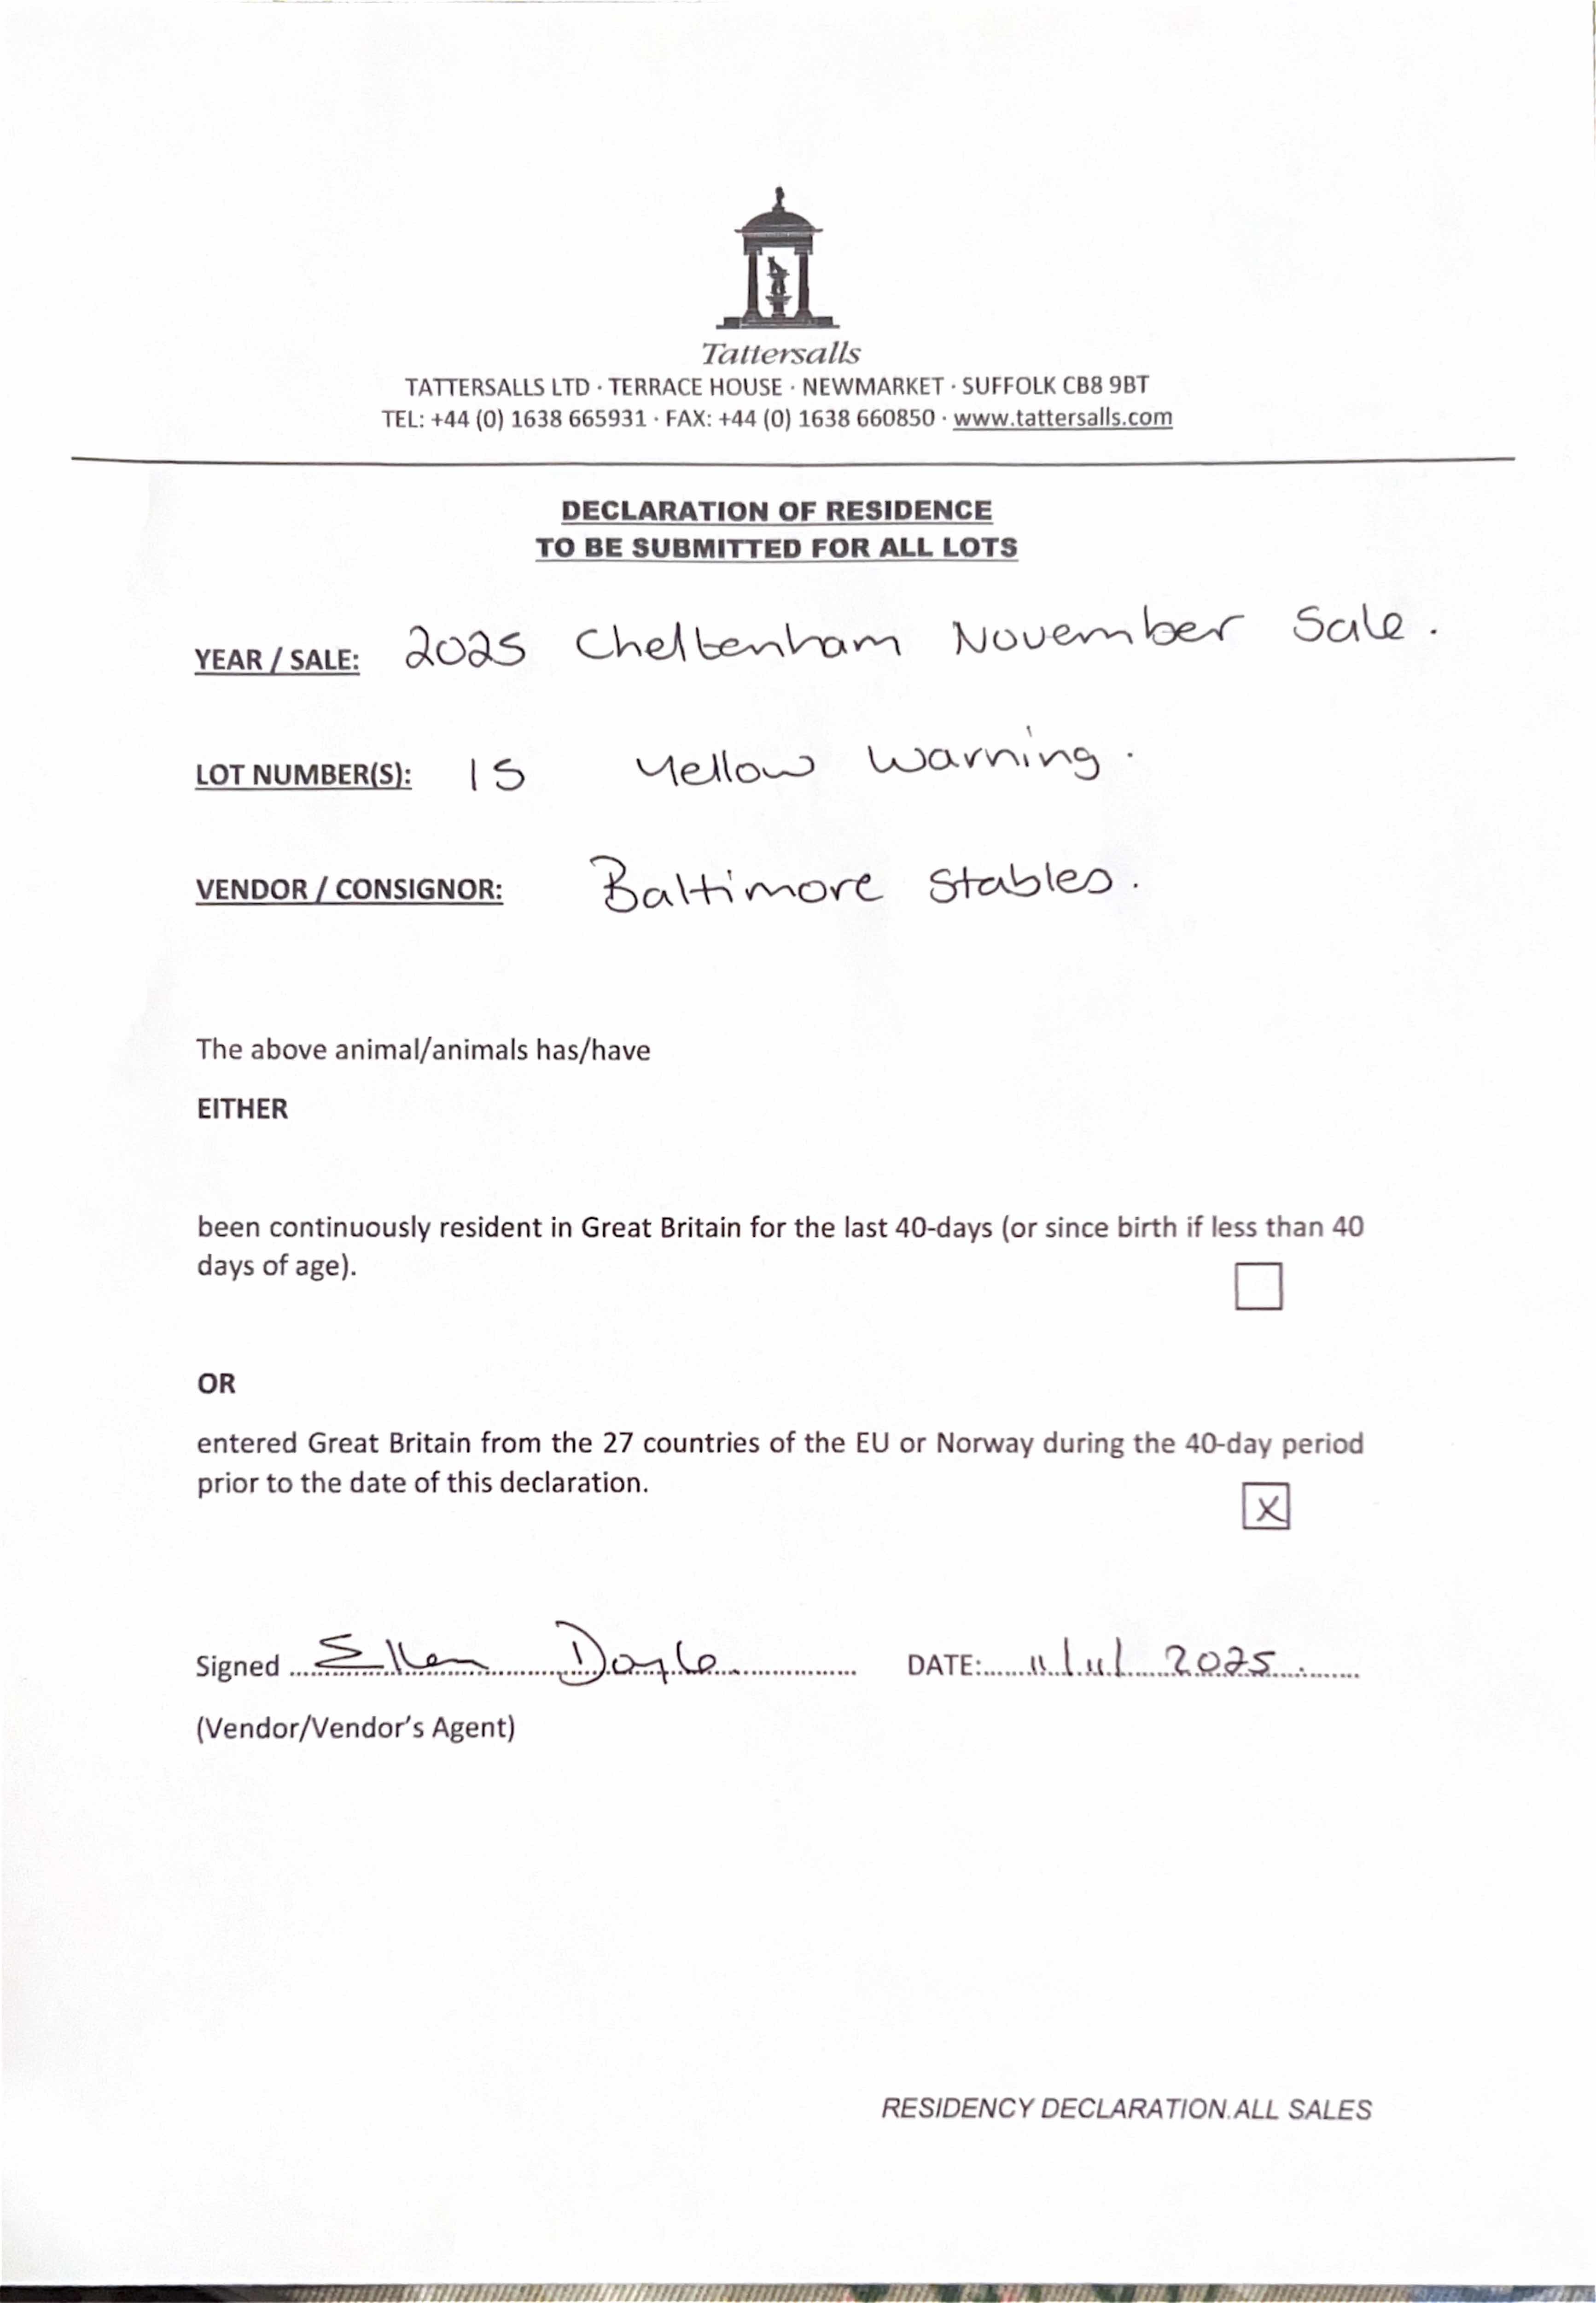 Tattersalls
TATTERSALLS LTD · TERRACE HOUSE · NEWMARKET · SUFFOLK CB8 9BT
TEL: +44 (0) 1638 665931 · FAX: +44 (0) 1638 660850 · www.tattersalls.com
DECLARATION OF RESIDENCE
TO BE SUBMITTED FOR ALL LOTS
YEAR / SALE: 2025 Cheltenham November Sale.
LOT NUMBER(S): 15 Yellow Warning.
VENDOR / CONSIGNOR: Baltimore Stables.
The above animal/animals has/have
EITHER
been continuously resident in Great Britain for the last 40-days (or since birth if less than 40
days of age).
OR
entered Great Britain from the 27 countries of the EU or Norway during the 40-day period
prior to the date of this declaration.
X
Signed Ellen Doyle DATE: 11/11/2025.
(Vendor/Vendor's Agent)
RESIDENCY DECLARATION.ALL SALES